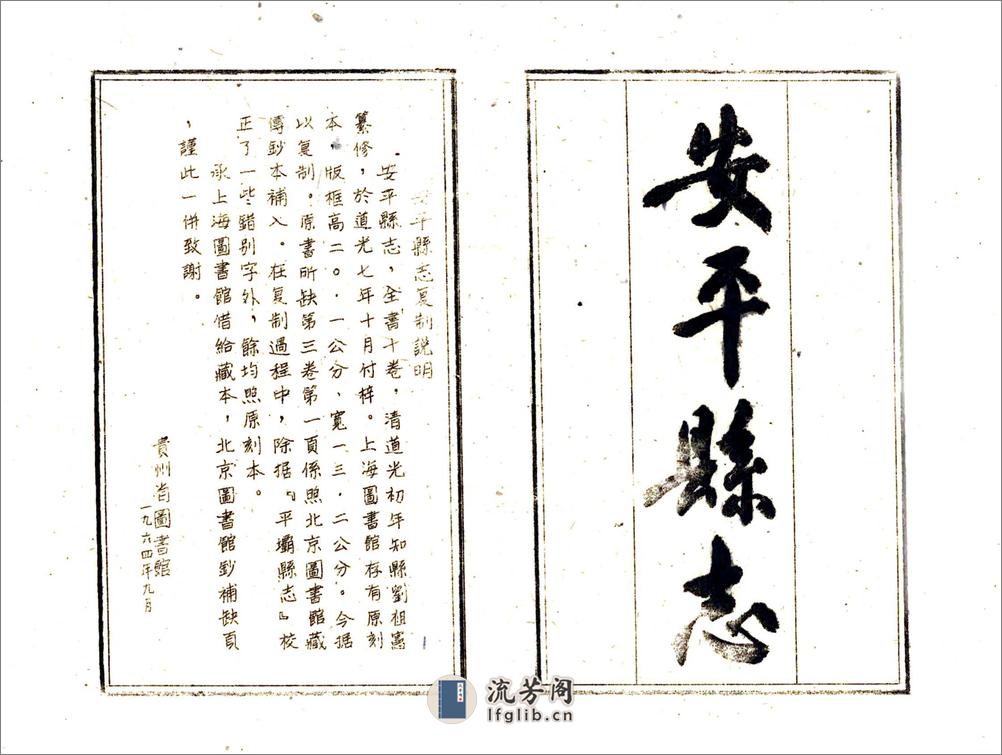 安平縣志
安平縣志复制説明
安平縣志,全書十卷,清道光初年知縣劉祖憲
纂修,於道光七年十月付梓。上海圖書館存有原刻
本,版框高二〇·一公分、寬一三·二公分。今据
以复制。原書所缺第三卷第一頁係照北京圖書館藏
傳鈔本補入。在复制過程中,除据『平壩縣志』校
正了一些錯别字外,餘均照原刻本。
承上海圖書館借給藏本,北京圖書館鈔補缺頁
,謹此一併致謝。
貴州省圖書館
一九六四年九月
流芳阁
lfglib.cn